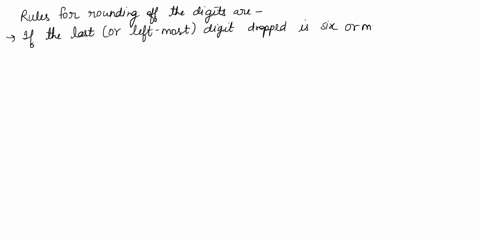 Rules for rounding off the digits are -
→ If the last (or left-most) digit dropped is six or m